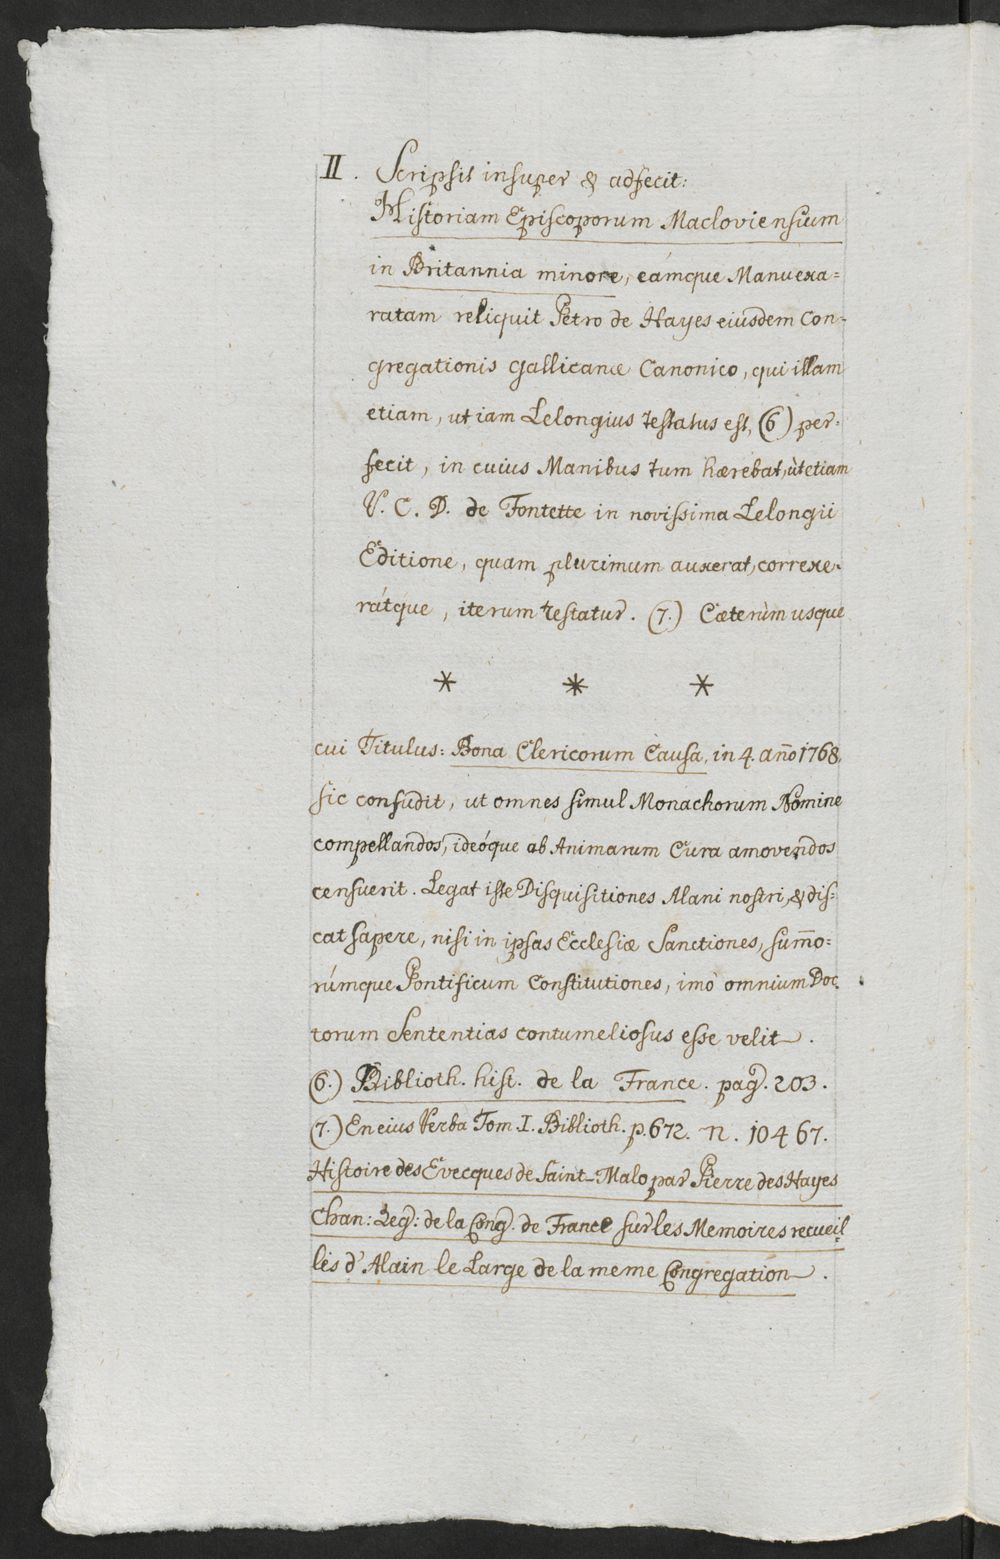 II. Scripsit insuper & adfecit:
Historiam Episcoporum Macloviensium
in Britannia minore, eámque Manu exa=
ratam reliquit Petro de Hayes eiusdem Con=
gregationis Gallicanæ Canonico, qui illam
etiam, ut iam Lelongius testatus est, (6) per=
fecit, in cuius Manibus tum hærebat, ùt etiam
V. C. D. de Fontette in novissima Lelongii
Editione, quam plurimum auxerat, correxe=
rátque, iterum testatur. (7.) Cæterùm usque
* * *
cui Titulus: Bona Clericorum Causa, in 4. año 1768,
sic confudit, ut omnes simul Monachorum Nomine
compellandos, ideóque ab Animarum Cura amovendos
censuerit. Legat iste Disquisitiones Alani nostri, & dis=
cat sapere, nisi in ipsas Ecclesiæ Sanctiones, sum̃o=
rúmque Pontificum Constitutiones, imò omnium Doc
torum Sententias contumeliosus esse velit.
(6.) Biblioth. hist. de la France. pag. 203.
(7.) En eius Verba Tom. I. Biblioth. p. 672. N. 10467.
Histoire des Evecques de Saint-Malo par Pierre des Hayes
Chan: Reg: de la Cong. de France sur les Memoires recueil=
lis d'Alain le Large de la meme Congregation.